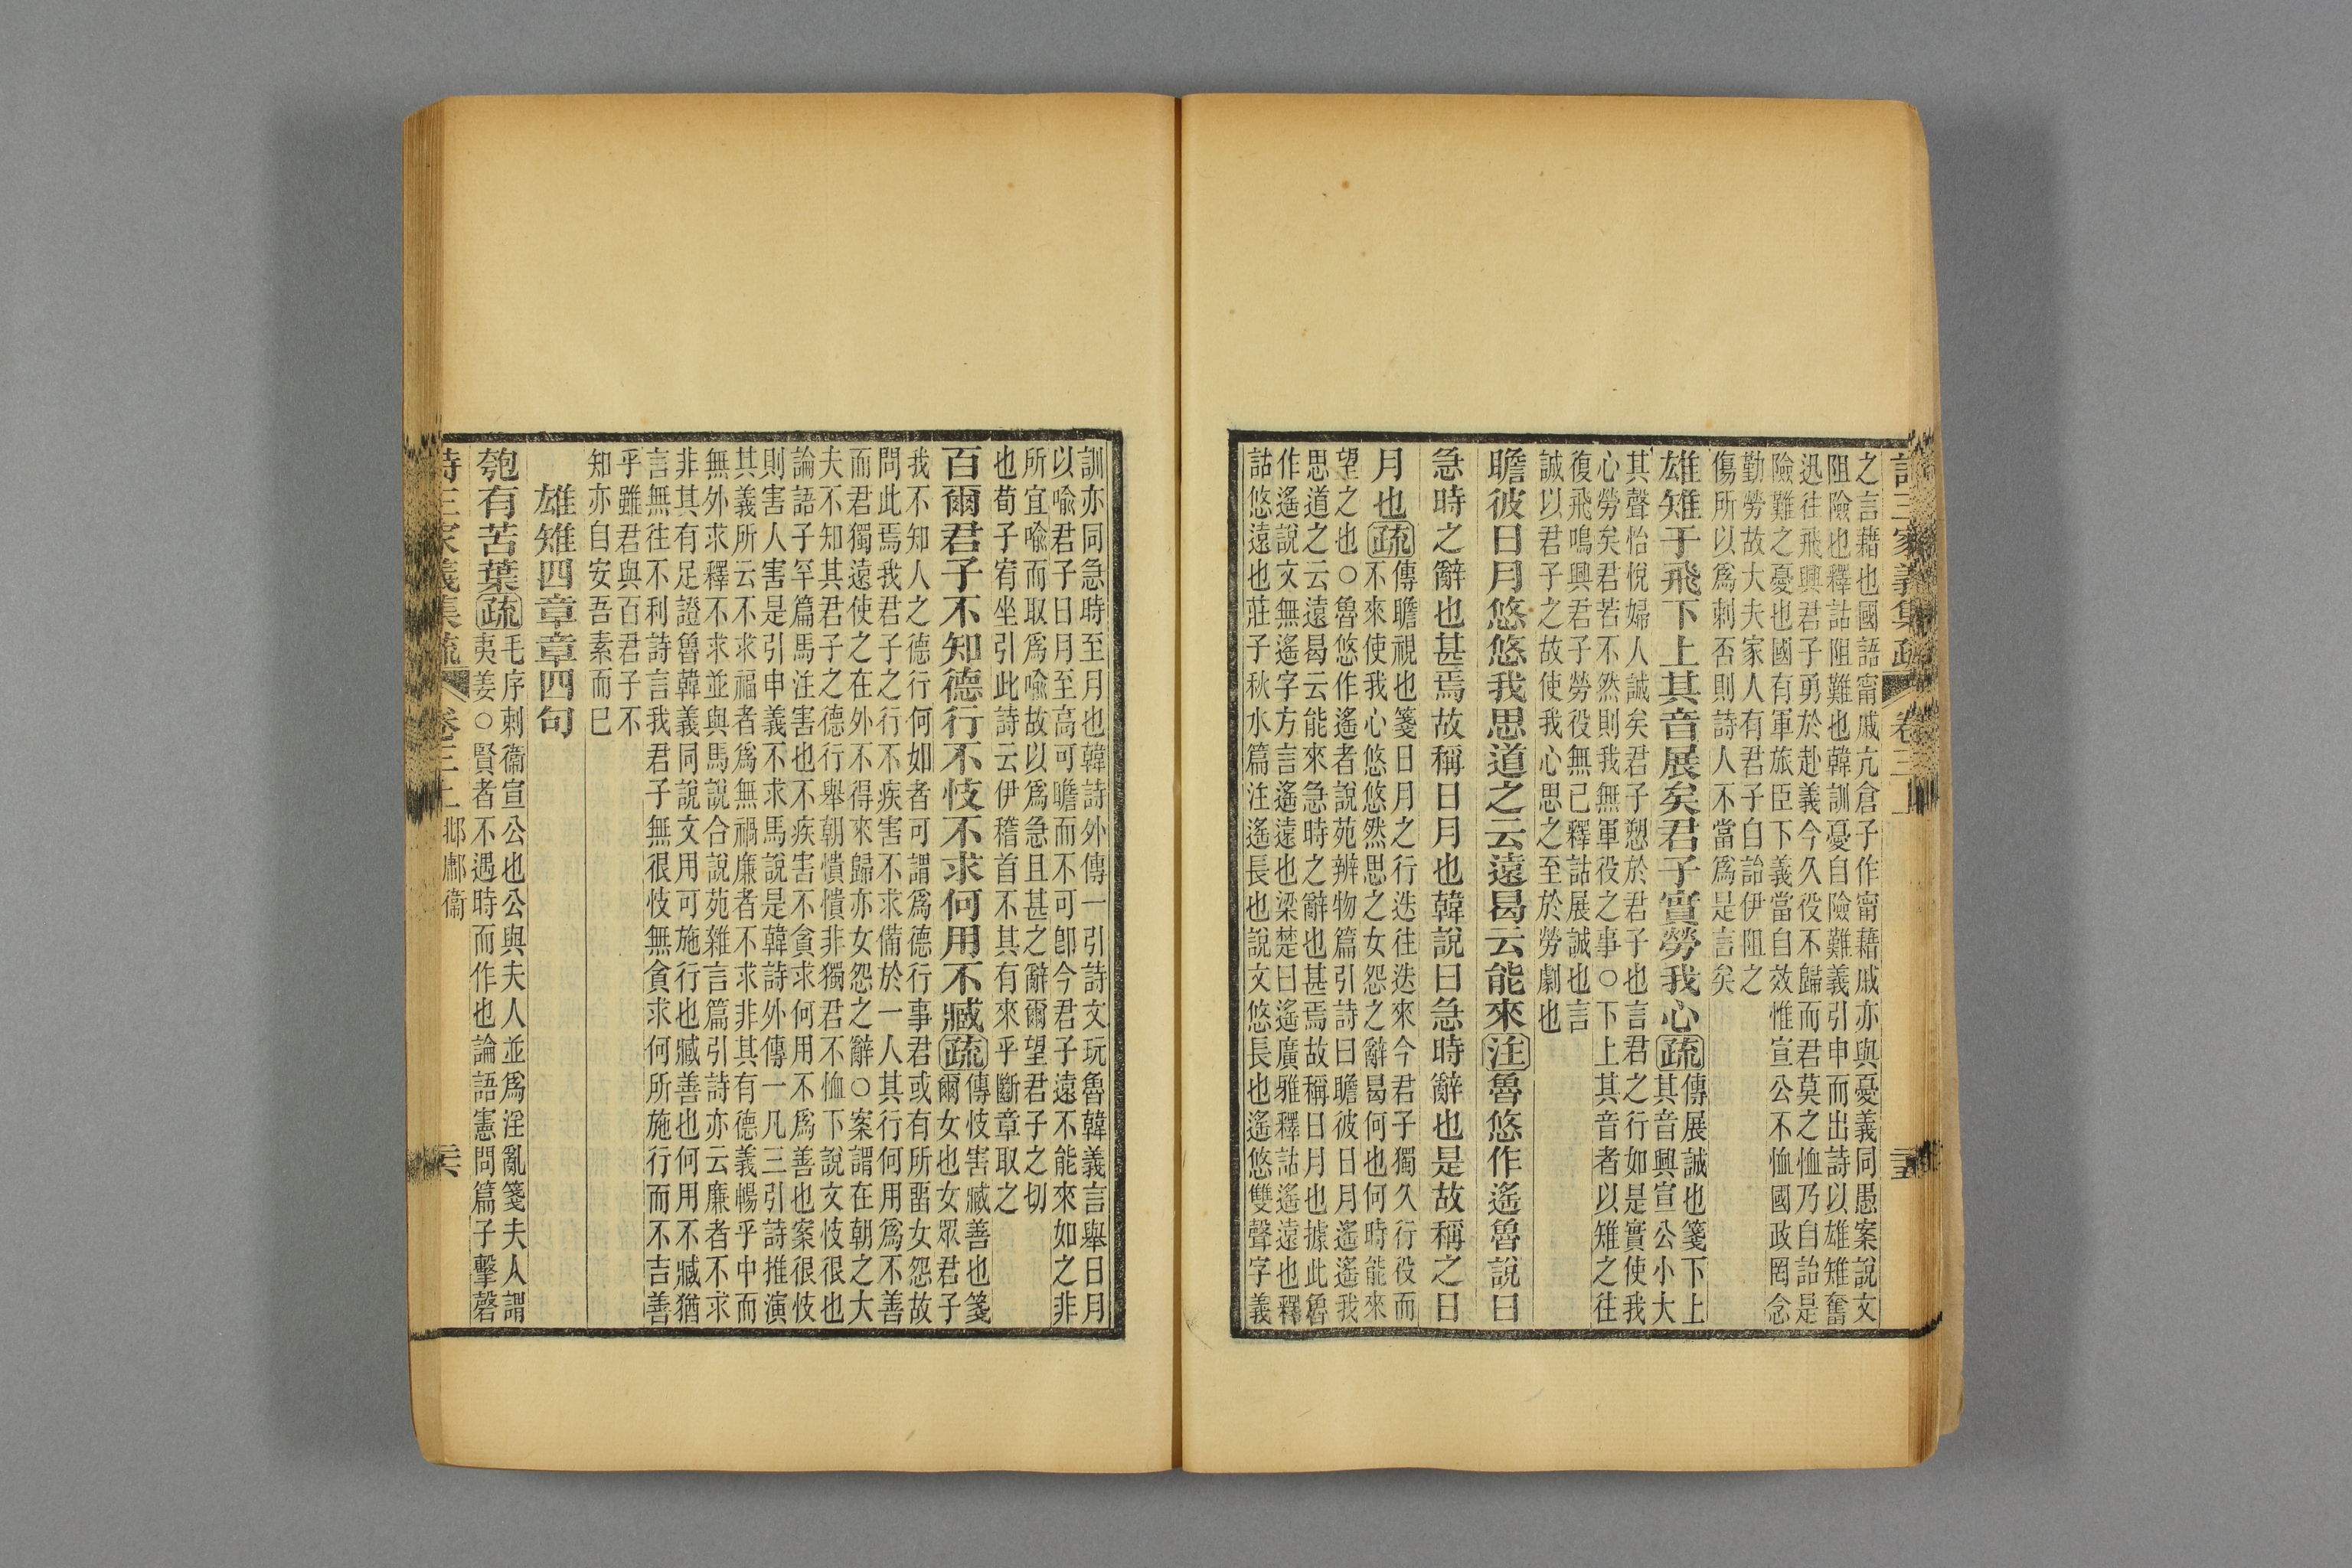 詩三家義集疏 卷三上 二五
之言藉也國語甯戚亢倉子作甯藉戚亦與憂義同愚案說文
阻險也釋詁阻難也韓訓憂自險難義引申而出詩以雄雉奮
迅往飛興君子勇於赴義今久役不歸而君莫之恤乃自詒是
險難之憂也國有軍旅臣下義當自效惟宣公不恤國政罔念
勤勞故大夫家人有君子自詒伊阻之
傷所以爲刺否則詩人不當爲是言矣
雄雉于飛下上其音展矣君子實勞我心疏
傳展誠也箋下上
其音興宣公小大
其聲怡悅婦人誠矣君子愬於君子也言君之行如是實使我
心勞矣君若不然則我無軍役之事○下上其音者以雉之往
復飛鳴興君子勞役無已釋詁展誠也言
誠以君子之故使我心思之至於勞劇也
瞻彼日月悠悠我思道之云遠曷云能來注魯悠作遙魯說曰
急時之辭也甚焉故稱日月也韓說曰急時辭也是故稱之日
月也疏
傳瞻視也箋日月之行迭往迭來今君子獨久行役而
不來使我心悠悠然思之女怨之辭曷何也何時能來
望之也○魯悠作遙者說苑辨物篇引詩曰瞻彼日月遙遙我
思道之云遠曷云能來急時之辭也甚焉故稱日月也據此魯
作遙說文無遙字方言遙遠也梁楚曰遙廣雅釋詁遙遠也釋
詁悠遠也莊子秋水篇注遙長也說文悠長也遙悠雙聲字義
訓亦同急時至月也韓詩外傳一引詩文玩魯韓義言舉日月
以喻君子日月至高可瞻而不可卽今君子遠不能來如之非
所宜喻而取爲喻故以爲急且甚之辭爾望君子之切
也荀子宥坐引此詩云伊稽首不其有來乎斷章取之
百爾君子不知德行不忮不求何用不臧疏
傳忮害臧善也箋
爾女也女眾君子
我不知人之德行何如者可謂爲德行事君或有所畱女怨故
問此焉我君子之行不疾害不求備於一人其行何用爲不善
而君獨遠使之在外不得來歸亦女怨之辭○案謂在朝之大
夫不知其君子之德行舉朝憒憒非獨君不恤下說文忮很也
論語子罕篇馬注害也不疾害不貪求何用不爲善也案很忮
則害人害是引申義不求馬說是韓詩外傳一凡三引詩推演
其義所云不求福者爲無禍廉者不求非其有德義暢乎中而
無外求釋不求並與馬說合說苑雜言篇引詩亦云廉者不求
非其有足證魯韓義同說文用可施行也臧善也何用不臧猶
言無往不利詩言我君子無很忮無貪求何所施行而不吉善
乎雖君與百君子不
知亦自安吾素而已
雄雉四章章四句
匏有苦葉疏
毛序刺衞宣公也公與夫人並爲淫亂箋夫人謂
夷姜○賢者不遇時而作也論語憲問篇子擊磬
詩三家義集疏 卷三上 邶鄘衞 二六